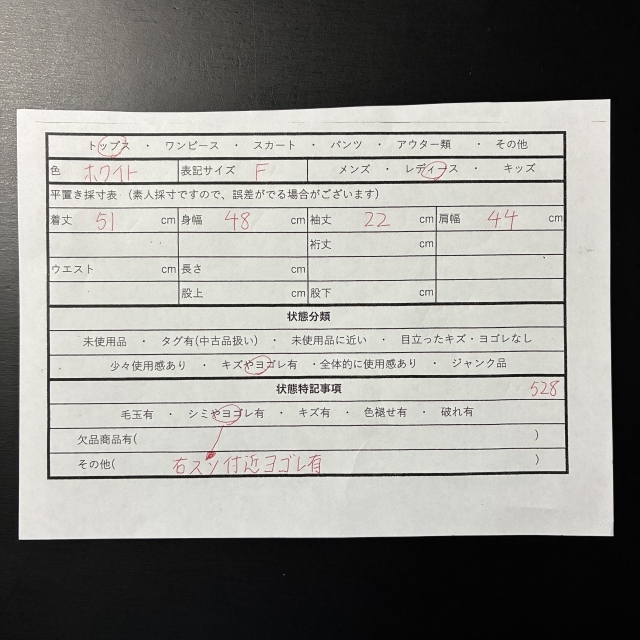 トップス ・ ワンピース ・ スカート ・ パンツ ・ アウター類 ・ その他
色 ホワイト 表記サイズ F メンズ ・ レディース ・ キッズ
平置き採寸表 （素人採寸ですので、誤差がでる場合がございます）
着丈 51 cm 身幅 48 cm 袖丈 22 cm 肩幅 44 cm
裄丈 cm
ウエスト cm 長さ cm
股上 cm 股下 cm
状態分類
未使用品 ・ タグ有(中古品扱い) ・ 未使用品に近い ・ 目立ったキズ・ヨゴレなし
・ 少々使用感あり ・ キズやヨゴレ有 ・全体的に使用感あり ・ ジャンク品
状態特記事項 528
毛玉有 ・ シミやヨゴレ有 ・ キズ有 ・ 色褪せ有 ・ 破れ有
欠品商品有( )
その他( 右スソ付近ヨゴレ有 )